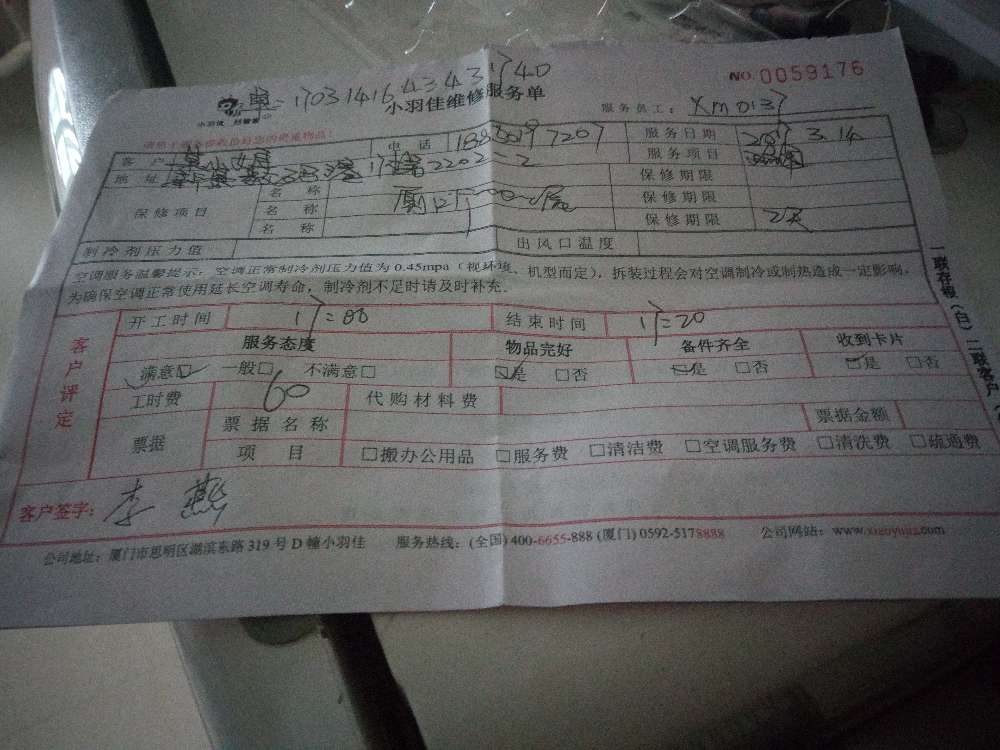 NO. 0059176
单:1703141643431740
小羽佳维修服务单
服务员工: Xm0137
客户 电话 服务日期 2017 3.14
地址 2202-2 服务项目
保修项目 名称 保修期限
名称 保修期限
名称 保修期限 2天
制冷剂压力值 出风口温度
空调服务温馨提示:空调正常制冷剂压力值为0.45mpa(视环境、机型而定),拆装过程会对空调制冷或制热造成一定影响,
为确保空调正常使用延长空调寿命,制冷剂不足时请及时补充.
客户评定
开工时间 17=00 结束时间 17=20
服务态度 物品完好 备件齐全 收到卡片
满意☑ 一般□ 不满意□ ☑是 □否 ☑是 □否 ☑是 □否
工时费 60 代购材料费
票据 票据名称 票据金额
项目 □搬办公用品 □服务费 □清洁费 □空调服务费 □清洗费 □疏通费
客户签字: 李燕
公司地址:厦门市思明区湖滨东路319号D幢小羽佳 服务热线:(全国)400-6655-888 (厦门)0592-5178888 公司网站:www.xiaoyujia.com
一联存根(白) 二联客户